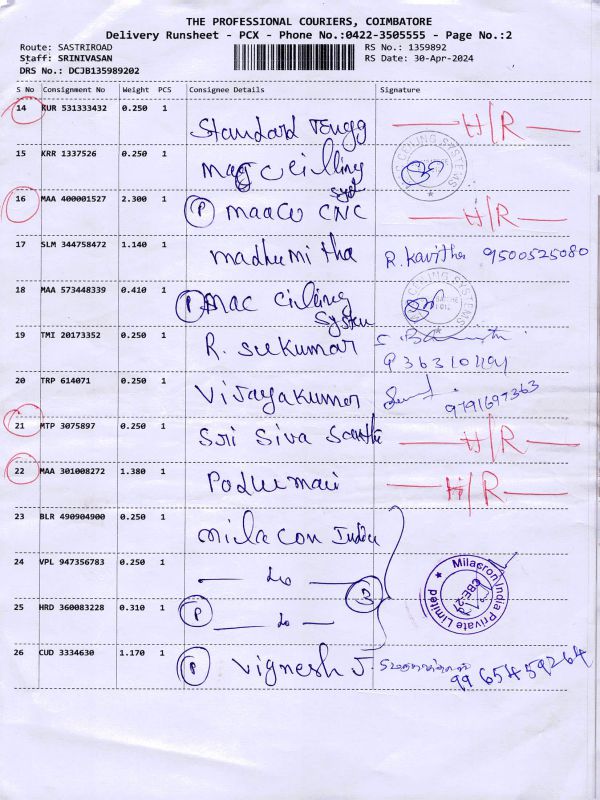 THE PROFESSIONAL COURIERS, COIMBATORE
Delivery Runsheet - PCX - Phone No.:0422-3505555 - Page No.:2
Route: SASTRIROAD RS No.: 1359892
Staff: SRINIVASAN RS Date: 30-Apr-2024
DRS No.: DCJB135989202
S No Consignment No Weight PCS Consignee Details Signature
14 KUR 531333432 0.250 1 Standard Engg H/R
15 KRR 1337526 0.250 1 Mac Ceilling
16 MAA 400001527 2.300 1 P maacu CNC H/R
17 SLM 344758472 1.140 1 madhumitha R. Kavitha 9500525080
18 MAA 573448339 0.410 1 P mac Cilling
System
19 TMI 20173352 0.250 1 R. Sukumar
20 TRP 614071 0.250 1 Vijayakumar 9791697363
21 MTP 3075897 0.250 1 Sri Siva H/R
22 MAA 301008272 1.380 1 Podhumani H/R
23 BLR 490904900 0.250 1 milacon India
24 VPL 947356783 0.250 1 do
3
Milacron India Private Limited
25 HRD 360083228 0.310 1 P do
26 CUD 3334630 1.170 1 P Vignesh J. 9965459264